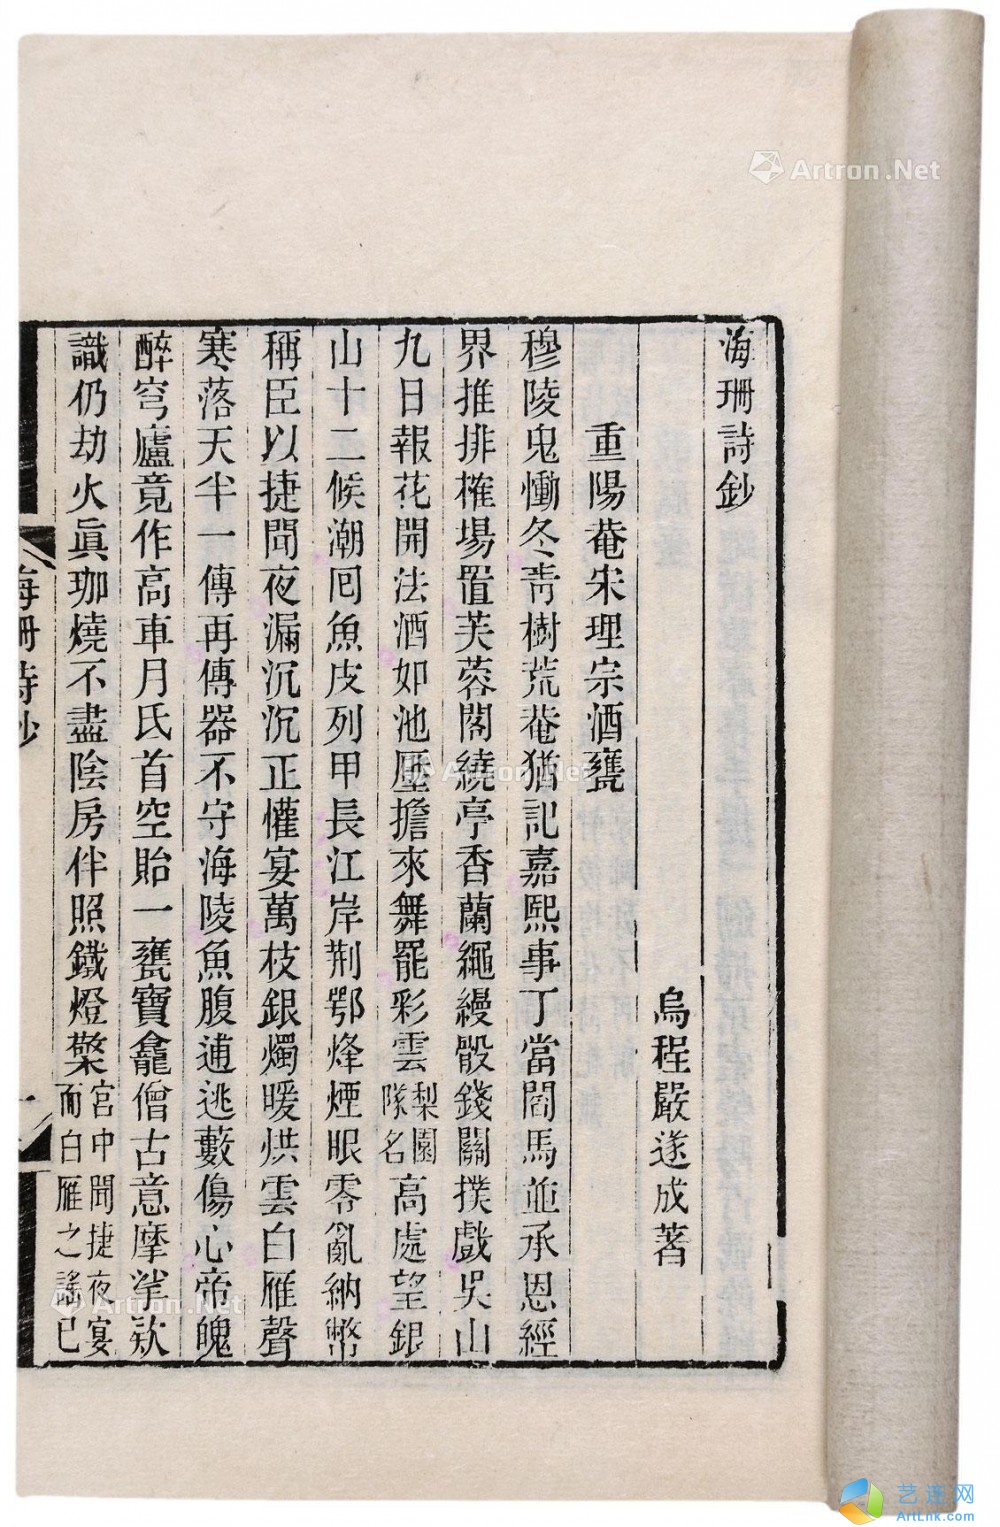 海珊詩鈔
烏程嚴遂成著
重陽菴宋理宗酒甕
穆陵鬼慟冬靑樹荒菴猶記嘉熙事丁當閻馬並承恩經
界推排榷場置芙蓉閣繞亭香蘭繩縵骰錢關撲戲吳山
九日報花開法酒如池壓擔來舞罷彩雲梨園隊名高處望銀
山十二候潮囘魚皮列甲長江岸荆鄂烽煙眼零亂納幣
稱臣以捷聞夜漏沉沉正懽宴萬枝銀燭暖烘雲白雁聲
寒落天半一傳再傳器不守海陵魚腹逋逃藪傷心帝魄
醉穹廬竟作高車月氏首空貽一甕寶龕僧古意摩挲欵
識仍劫火眞珈燒不盡陰房伴照鐵燈檠宮中聞捷夜宴而白雁之謠已
海珊詩鈔
一
Artron.Net
Artron.Net
Artron.Net
艺连网
ArtLnk.com